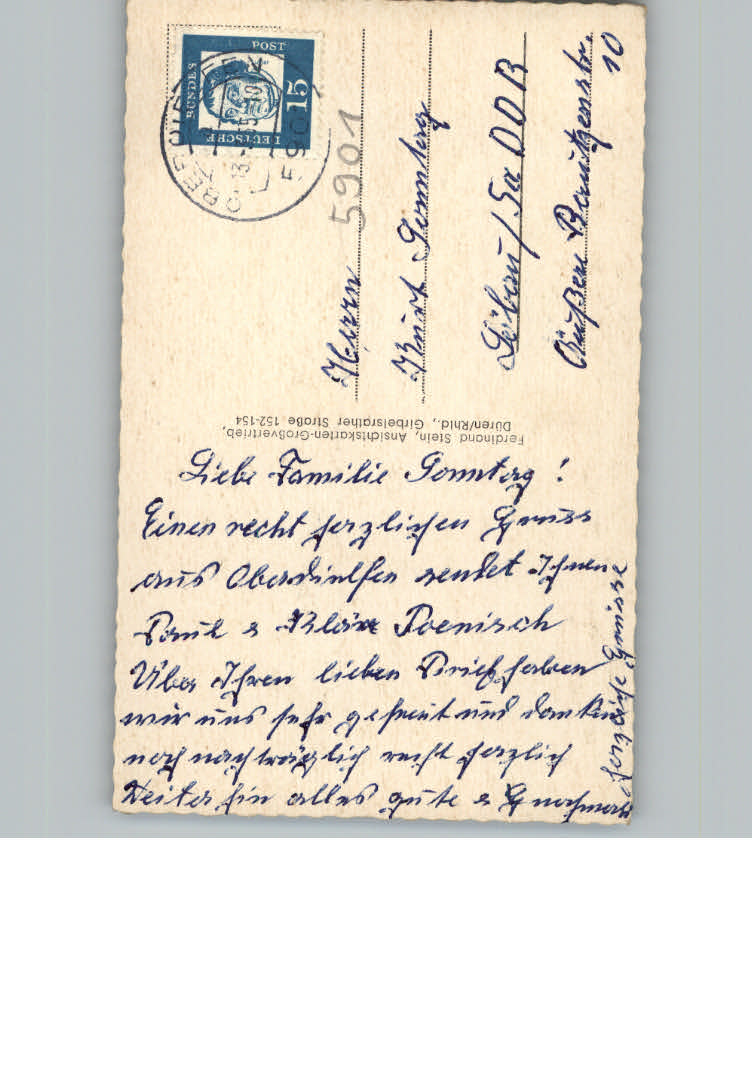 DEUTSCHE
BUNDES
POST
15
5901
Herrn
Kurt Sonntag
Löbau/Sa DDR
Äußere Bautzenstr.
10
Ferdinand Stein, Ansichtskarten-Großvertrieb,
Düren/Rhld., Girbelsrather Straße 152-154
Liebe Familie Sonntag!
Einen recht herzlichen Gruss
aus Oberdielfen sendet Ihnen
Paul & Klara Poenisch
Über Ihren lieben Brief haben
wir uns sehr gefreut und danken
noch nachträglich recht herzlich
Weiterhin alles gute & nochmals
herzliche Grüsse